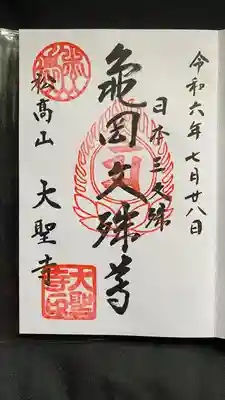 令和六年七月廿八日
日本三文殊
亀岡文殊尊
松高山
大聖寺
大聖
寺印